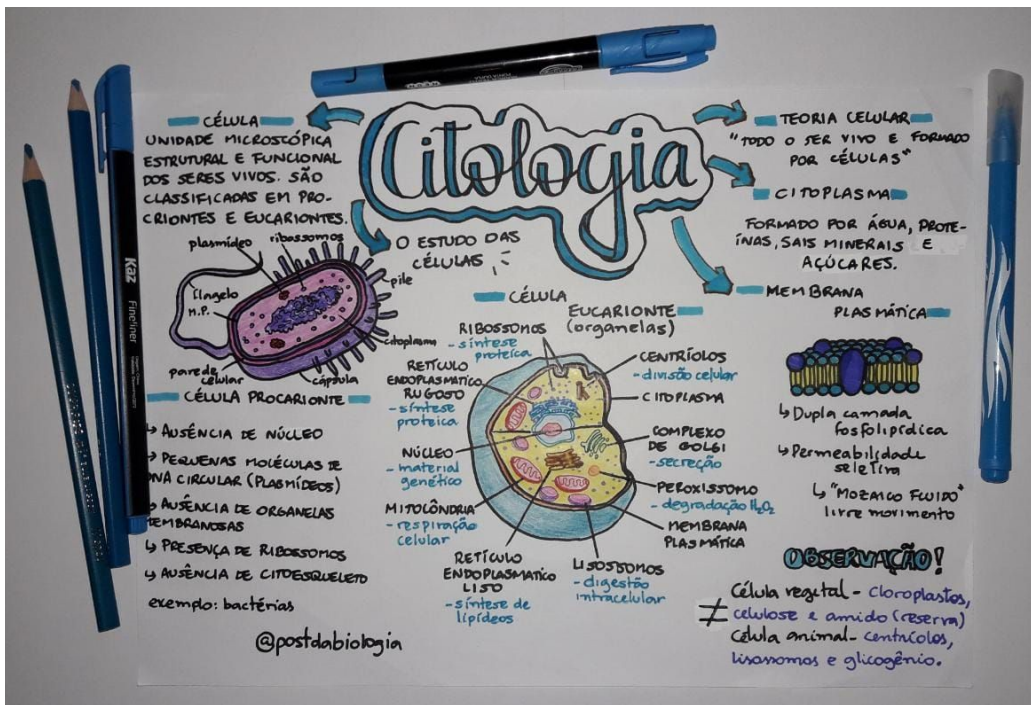 Citologia
CÉLULA
UNIDADE MICROSCÓPICA
ESTRUTURAL E FUNCIONAL
DOS SERES VIVOS. SÃO
CLASSIFICADAS EM PRO-
CRIONTES E EUCARIONTES.
O ESTUDO DAS
CÉLULAS
plasmídeo
ribossomos
pile
flagelo
M.P.
citoplasma
parede
celular
cápsula
CÉLULA PROCARIONTE
↳ AUSÊNCIA DE NÚCLEO
↳ PEQUENAS MOLÉCULAS DE
DNA CIRCULAR (PLASMÍDEOS)
↳ AUSÊNCIA DE ORGANELAS
MEMBRANOSAS
↳ PRESENÇA DE RIBOSSOMOS
↳ AUSÊNCIA DE CITOESQUELETO
exemplo: bactérias
@postdabiologia
CÉLULA
EUCARIONTE
(organelas)
RIBOSSOMOS
- síntese
proteíca
RETÍCULO
ENDOPLASMATICO
RUGOSO
- síntese
proteica
NÚCLEO
- material
genético
MITOCÔNDRIA
- respiração
celular
RETÍCULO
ENDOPLASMATICO
LISO
- síntese de
lipídeos
LISOSSOMOS
- digestão
intracelular
CENTRÍOLOS
- divisão celular
CITOPLASMA
COMPLEXO
DE GOLGI
- secreção
PEROXISSOMO
- degradação H₂O₂
MEMBRANA
PLASMÁTICA
TEORIA CELULAR
"TODO O SER VIVO E FORMADO
POR CÉLULAS"
CITOPLASMA
FORMADO POR ÁGUA, PROTE-
ÍNAS, SAIS MINERAIS E
AÇÚCARES.
MEMBRANA
PLASMÁTICA
↳ Dupla camada
fosfolipídica
↳ Permeabilidade
seletiva
↳ "MOZAICO FLUIDO"
livre movimento
OBSERVAÇÃO!
Célula vegetal - cloroplastos,
≠ celulose e amido (reserva)
Célula animal - centríolos,
lisossomos e glicogênio.
Kaz
Fineliner